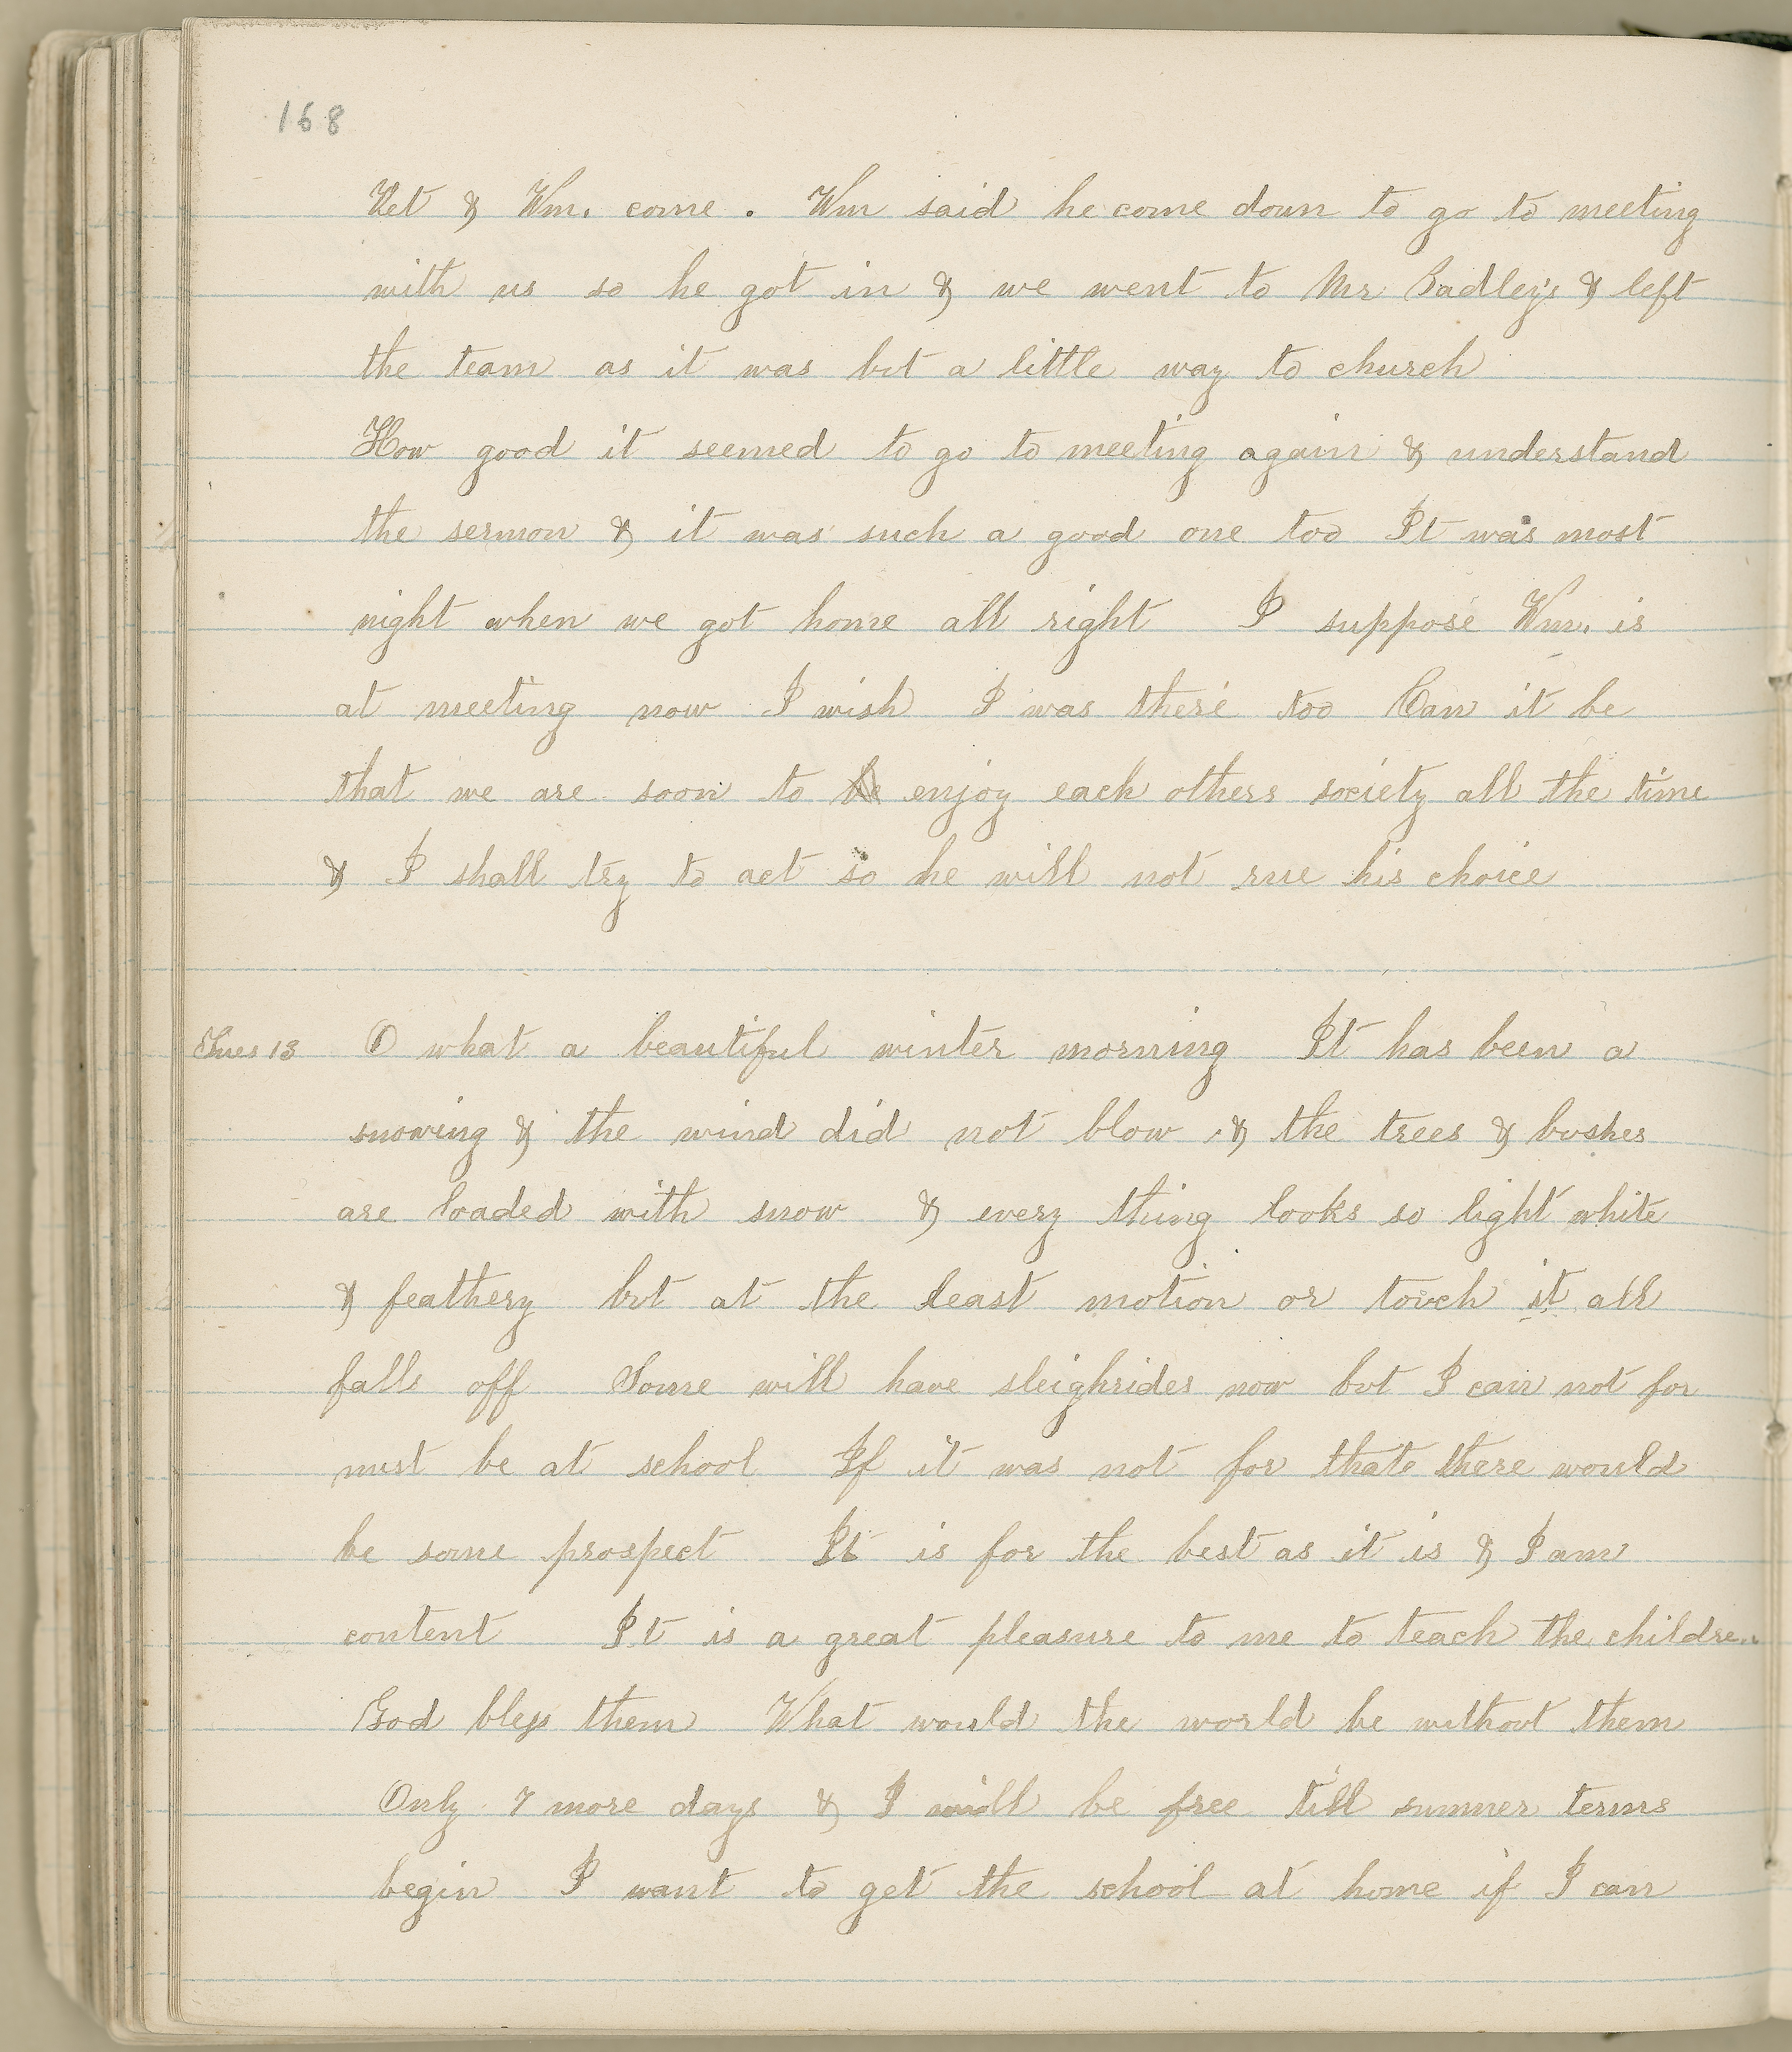 168
Vet & Wm. come. Wm said he come down to go to meeting
with us so he got in & we went to Mr Badley's & left
the team as it was but a little way to church
How good it seemed to go to meeting again & understand
the sermon & it was such a good one too It was most
night when we got home all right I suppose Wm. is
at meeting now I wish I was there too Can it be
that we are soon to enjoy each others society all the time
& I shall try to act so he will not rue his choice
Tues 13 O what a beautiful winter morning It has been a
snowing & the wind did not blow & the trees & bushes
are loaded with snow & every thing looks so light white
& feathery but at the least motion or touch it all
falls off Some will have sleighrides now but I can not for
must be at school If it was not for that there would
be some prospect It is for the best as it is & I am
content It is a great pleasure to me to teach the children
God bless them What would the world be without them
Only 7 more days & I will be free till summer terms
begin I want to get the school at home if I can